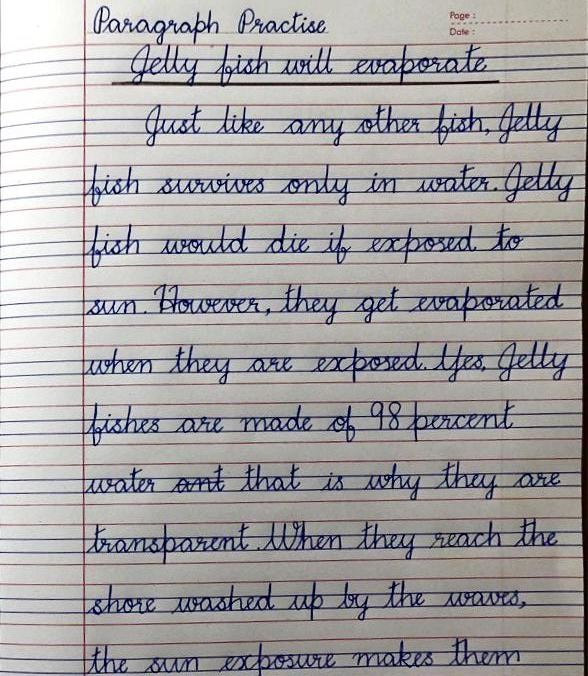 Paragraph Practise
Page :
Date :
Jelly fish will evaporate
Just like any other fish, Jelly
fish survives only in water. Jelly
fish would die if exposed to
sun. However, they get evaporated
when they are exposed. Yes, Jelly
fishes are made of 98 percent
water ant that is why they are
transparent. When they reach the
shore washed up by the waves,
the sun exposure makes them